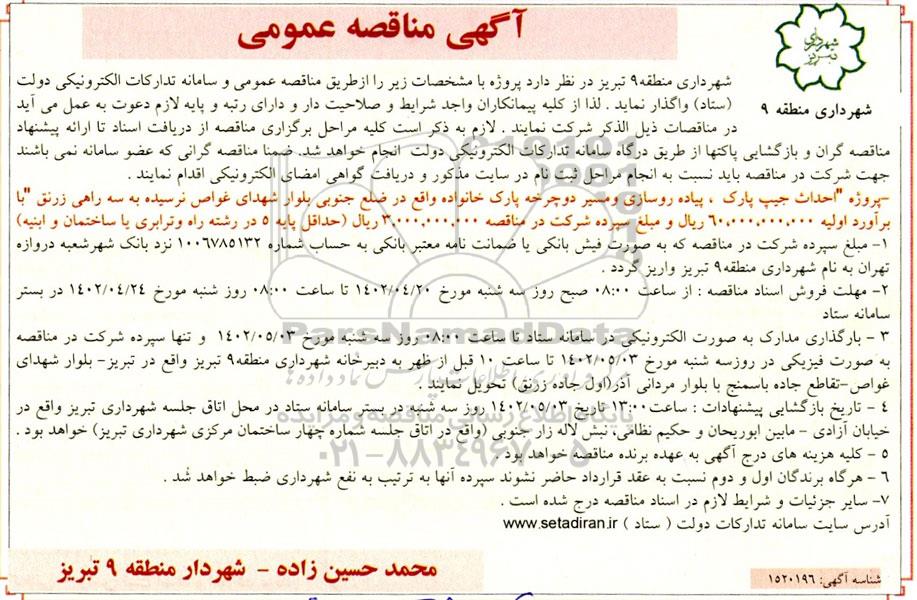 آگهی مناقصه عمومی
شهرداری تبریز
شهرداری منطقه ۹
شهرداری منطقه۹ تبریز در نظر دارد پروژه با مشخصات زیر را ازطریق مناقصه عمومی و سامانه تدارکات الکترونیکی دولت
(ستاد) واگذار نماید . لذا از کلیه پیمانکاران واجد شرایط و صلاحیت دار و دارای رتبه و پایه لازم دعوت به عمل می آید
در مناقصات ذیل الذکر شرکت نمایند . لازم به ذکر است کلیه مراحل برگزاری مناقصه از دریافت اسناد تا ارائه پیشنهاد
مناقصه گران و بازگشایی پاکتها از طریق درگاه سامانه تدارکات الکترونیکی دولت انجام خواهد شد. ضمنا مناقصه گرانی که عضو سامانه نمی باشند
جهت شرکت در مناقصه باید نسبت به انجام مراحل ثبت نام در سایت مذکور و دریافت گواهی امضای الکترونیکی اقدام نمایند .
-پروژه "احداث جیپ پارک ، پیاده روسازی ومسیر دوچرخه پارک خانواده واقع در ضلع جنوبی بلوار شهدای غواص نرسیده به سه راهی زرنق "با
برآورد اولیه ۶۰,۰۰۰,۰۰۰,۰۰۰ ریال و مبلغ سپرده شرکت در مناقصه ۳,۰۰۰,۰۰۰,۰۰۰ ریال (حداقل پایه ۵ در رشته راه وترابری یا ساختمان و ابنیه)
۱- مبلغ سپرده شرکت در مناقصه که به صورت فیش بانکی یا ضمانت نامه معتبر بانکی به حساب شماره ۱۰۰۶۷۸۵۱۳۲ نزد بانک شهرشعبه دروازه
تهران به نام شهرداری منطقه۹ تبریز واریز گردد .
۲- مهلت فروش اسناد مناقصه : از ساعت ۰۸:۰۰ صبح روز سه شنبه مورخ ۱۴۰۲/۰۴/۲۰ تا ساعت ۰۸:۰۰ روز شنبه مورخ ۱۴۰۲/۰۴/۲۴ در بستر
سامانه ستاد
۳ - بارگذاری مدارک به صورت الکترونیکی در سامانه ستاد تا ساعت ۰۸:۰۰ روز سه شنبه مورخ ۱۴۰۲/۰۵/۰۳ و تنها سپرده شرکت در مناقصه
به صورت فیزیکی در روزسه شنبه مورخ ۱۴۰۲/۰۵/۰۳ تا ساعت ۱۰ قبل از ظهر به دبیرخانه شهرداری منطقه۹ تبریز واقع در تبریز- بلوار شهدای
غواص-تقاطع جاده باسمنج با بلوار مردانی آذر(اول جاده زرنق) تحویل نمایند .
۴ - تاریخ بازگشایی پیشنهادات : ساعت۱۳:۰۰ تاریخ ۱۴۰۲/۰۵/۰۳ روز سه شنبه در بستر سامانه ستاد در محل اتاق جلسه شهرداری تبریز واقع در
خیابان آزادی - مابین ابوریحان و حکیم نظامی، نبش لاله زار جنوبی (واقع در اتاق جلسه شماره چهار ساختمان مرکزی شهرداری تبریز) خواهد بود .
۵ - کلیه هزینه های درج آگهی به عهده برنده مناقصه خواهد بود .
۶ - هرگاه برندگان اول و دوم نسبت به عقد قرارداد حاضر نشوند سپرده آنها به ترتیب به نفع شهرداری ضبط خواهد شد .
۷- سایر جزئیات و شرایط لازم در اسناد مناقصه درج شده است .
آدرس سایت سامانه تدارکات دولت ( ستاد ) www.setadiran.ir
محمد حسین زاده - شهردار منطقه ۹ تبریز
شناسه آگهی: ۱۵۲۰۱۹۶
ParsNamadData
پایگاه اطلاع رسانی مناقصه و مزایده
۰۲۱-۸۸۳۴۹۶۷۰-۵